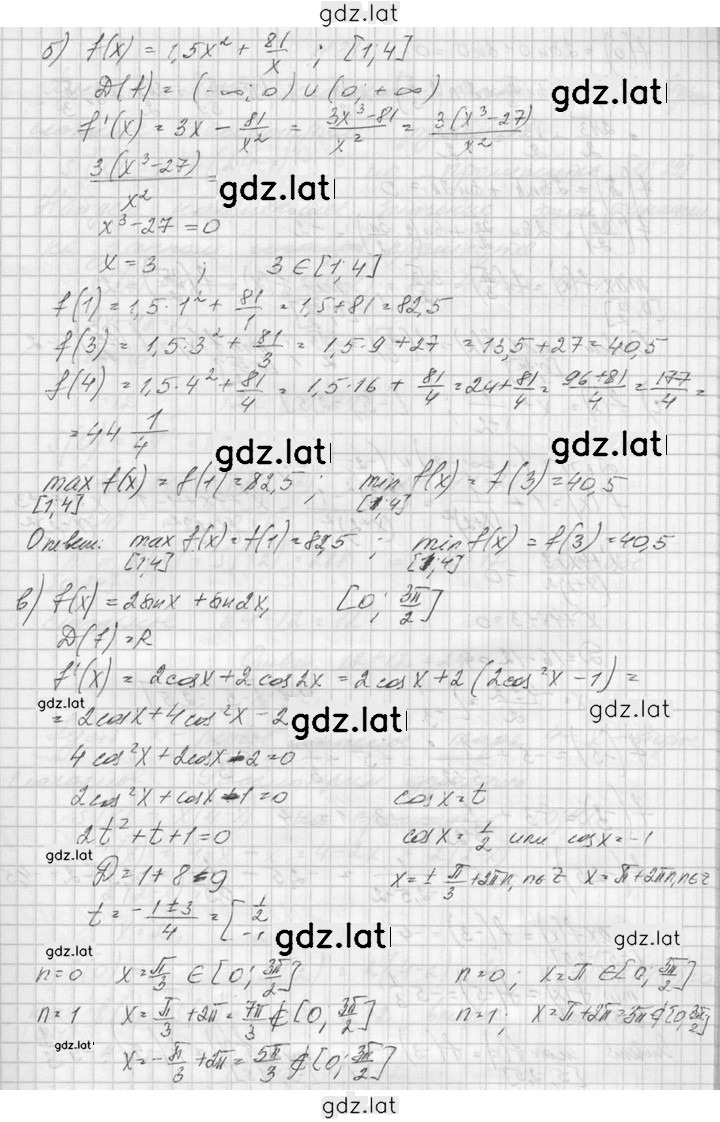 gdz.lat
б) f(x) = 1,5x² + 81/x ; [1;4]
D(f) = (-∞; 0) ∪ (0; +∞)
gdz.lat
f'(x) = 3x - 81/x² = (3x³-81)/x² = 3(x³-27)/x²
3(x³-27)/x² =
gdz.lat
x³-27 = 0
x = 3 ; 3 ∈ [1;4]
f(1) = 1,5·1² + 81/1 = 1,5+81 = 82,5
f(3) = 1,5·3² + 81/3 = 1,5·9+27 = 13,5+27 = 40,5
f(4) = 1,5·4² + 81/4 = 1,5·16 + 81/4 = 24+81/4 = (96+81)/4 = 177/4 =
= 44 1/4
gdz.lat gdz.lat
max f(x) = f(1) = 82,5 ; min f(x) = f(3) = 40,5
[1;4] [1;4]
Ответ: max f(x) = f(1) = 82,5 ; min f(x) = f(3) = 40,5
[1;4] [1;4]
в) f(x) = 2sinx + sin2x, [0; 3π/2]
D(f) = R
f'(x) = 2cosx + 2cos2x = 2cosx + 2(2cos²x - 1) =
gdz.lat gdz.lat
= 2cosx + 4cos²x - 2
gdz.lat
4cos²x + 2cosx - 2 = 0
2cos²x + cosx - 1 = 0 cosx = t
2t² + t + 1 = 0 cosx = 1/2 или cosx = -1
gdz.lat
D = 1 + 8 = 9 x = ± π/3 + 2πn, n∈Z x = π + 2πn, n∈Z
t = -1±3/4 = [ 1/2
-1
gdz.lat gdz.lat
gdz.lat
n=0 x = π/3 ∈ [0; 3π/2] n=0; x = π ∈ [0; 3π/2]
gdz.lat gdz.lat
n=1 x = π/3 + 2π = 7π/3 ∉ [0, 3π/2] n=1; x = π + 2π = 3π ∉ [0, 3π/2]
gdz.lat
x = -π/3 + 2π = 5π/3 ∉ [0; 3π/2]
gdz.lat